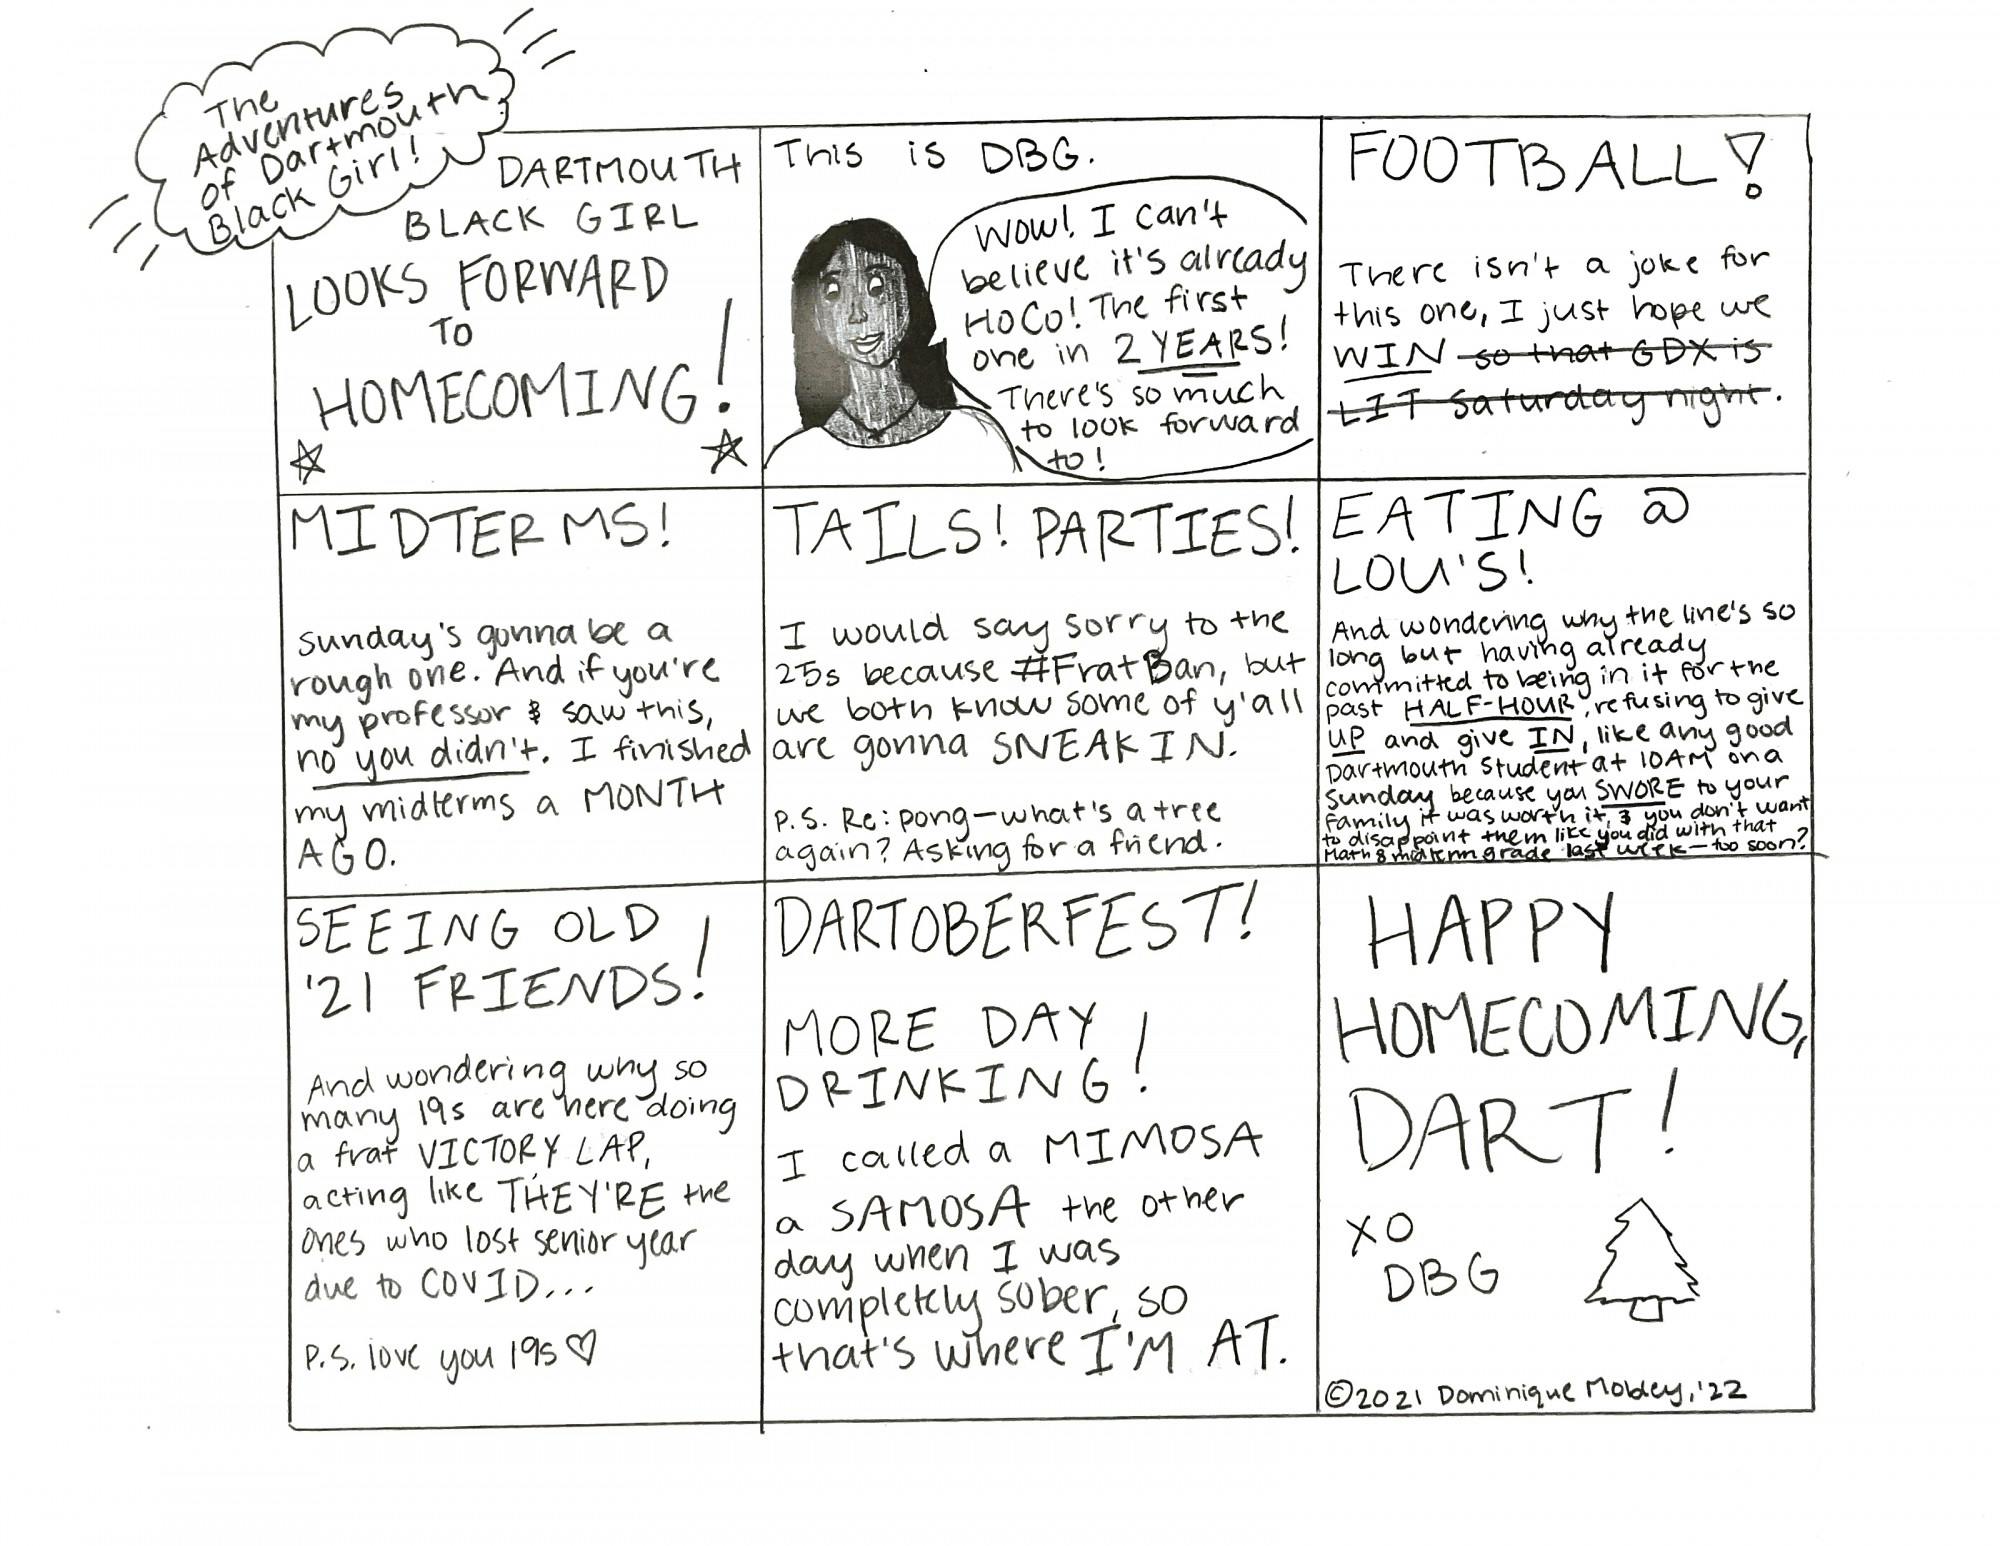 The
Adventures
of Dartmouth
Black Girl!
DARTMOUTH
BLACK GIRL
LOOKS FORWARD
TO
HOMECOMING!
This is DBG.
Wow! I can't
believe it's already
HOCO! The first
one in 2 YEARS!
There's so much
to look forward
to!
FOOTBALL!
There isn't a joke for
this one, I just hope we
WIN so that GDX is
LIT Saturday night.
MIDTERMS!
Sunday's gonna be a
rough one. And if you're
my professor & saw this,
no you didn't. I finished
my midterms a MONTH
AGO.
TAILS! PARTIES!
I would say sorry to the
25s because #FratBan, but
we both know some of y'all
are gonna SNEAK IN.
P.S. Re: pong—what's a tree
again? Asking for a friend.
EATING @
LOU'S!
And wondering why the line's so
long but having already
committed to being in it for the
past HALF-HOUR, refusing to give
UP and give IN, like any good
Dartmouth student at 10AM on a
Sunday because you SWORE to your
family it was worth it, & you don't want
to disappoint them like you did with that
Math 8 midterm grade last week—too soon?
SEEING OLD
'21 FRIENDS!
And wondering why so
many 19s are here doing
a frat VICTORY LAP,
acting like THEY'RE the
ones who lost senior year
due to COVID...
P.S. love you 19s ♡
DARTOBERFEST!
MORE DAY
DRINKING!
I called a MIMOSA
a SAMOSA the other
day when I was
completely sober, so
that's where I'M AT.
HAPPY
HOMECOMING,
DART!
XO
DBG
©2021 Dominique Mobley, '22